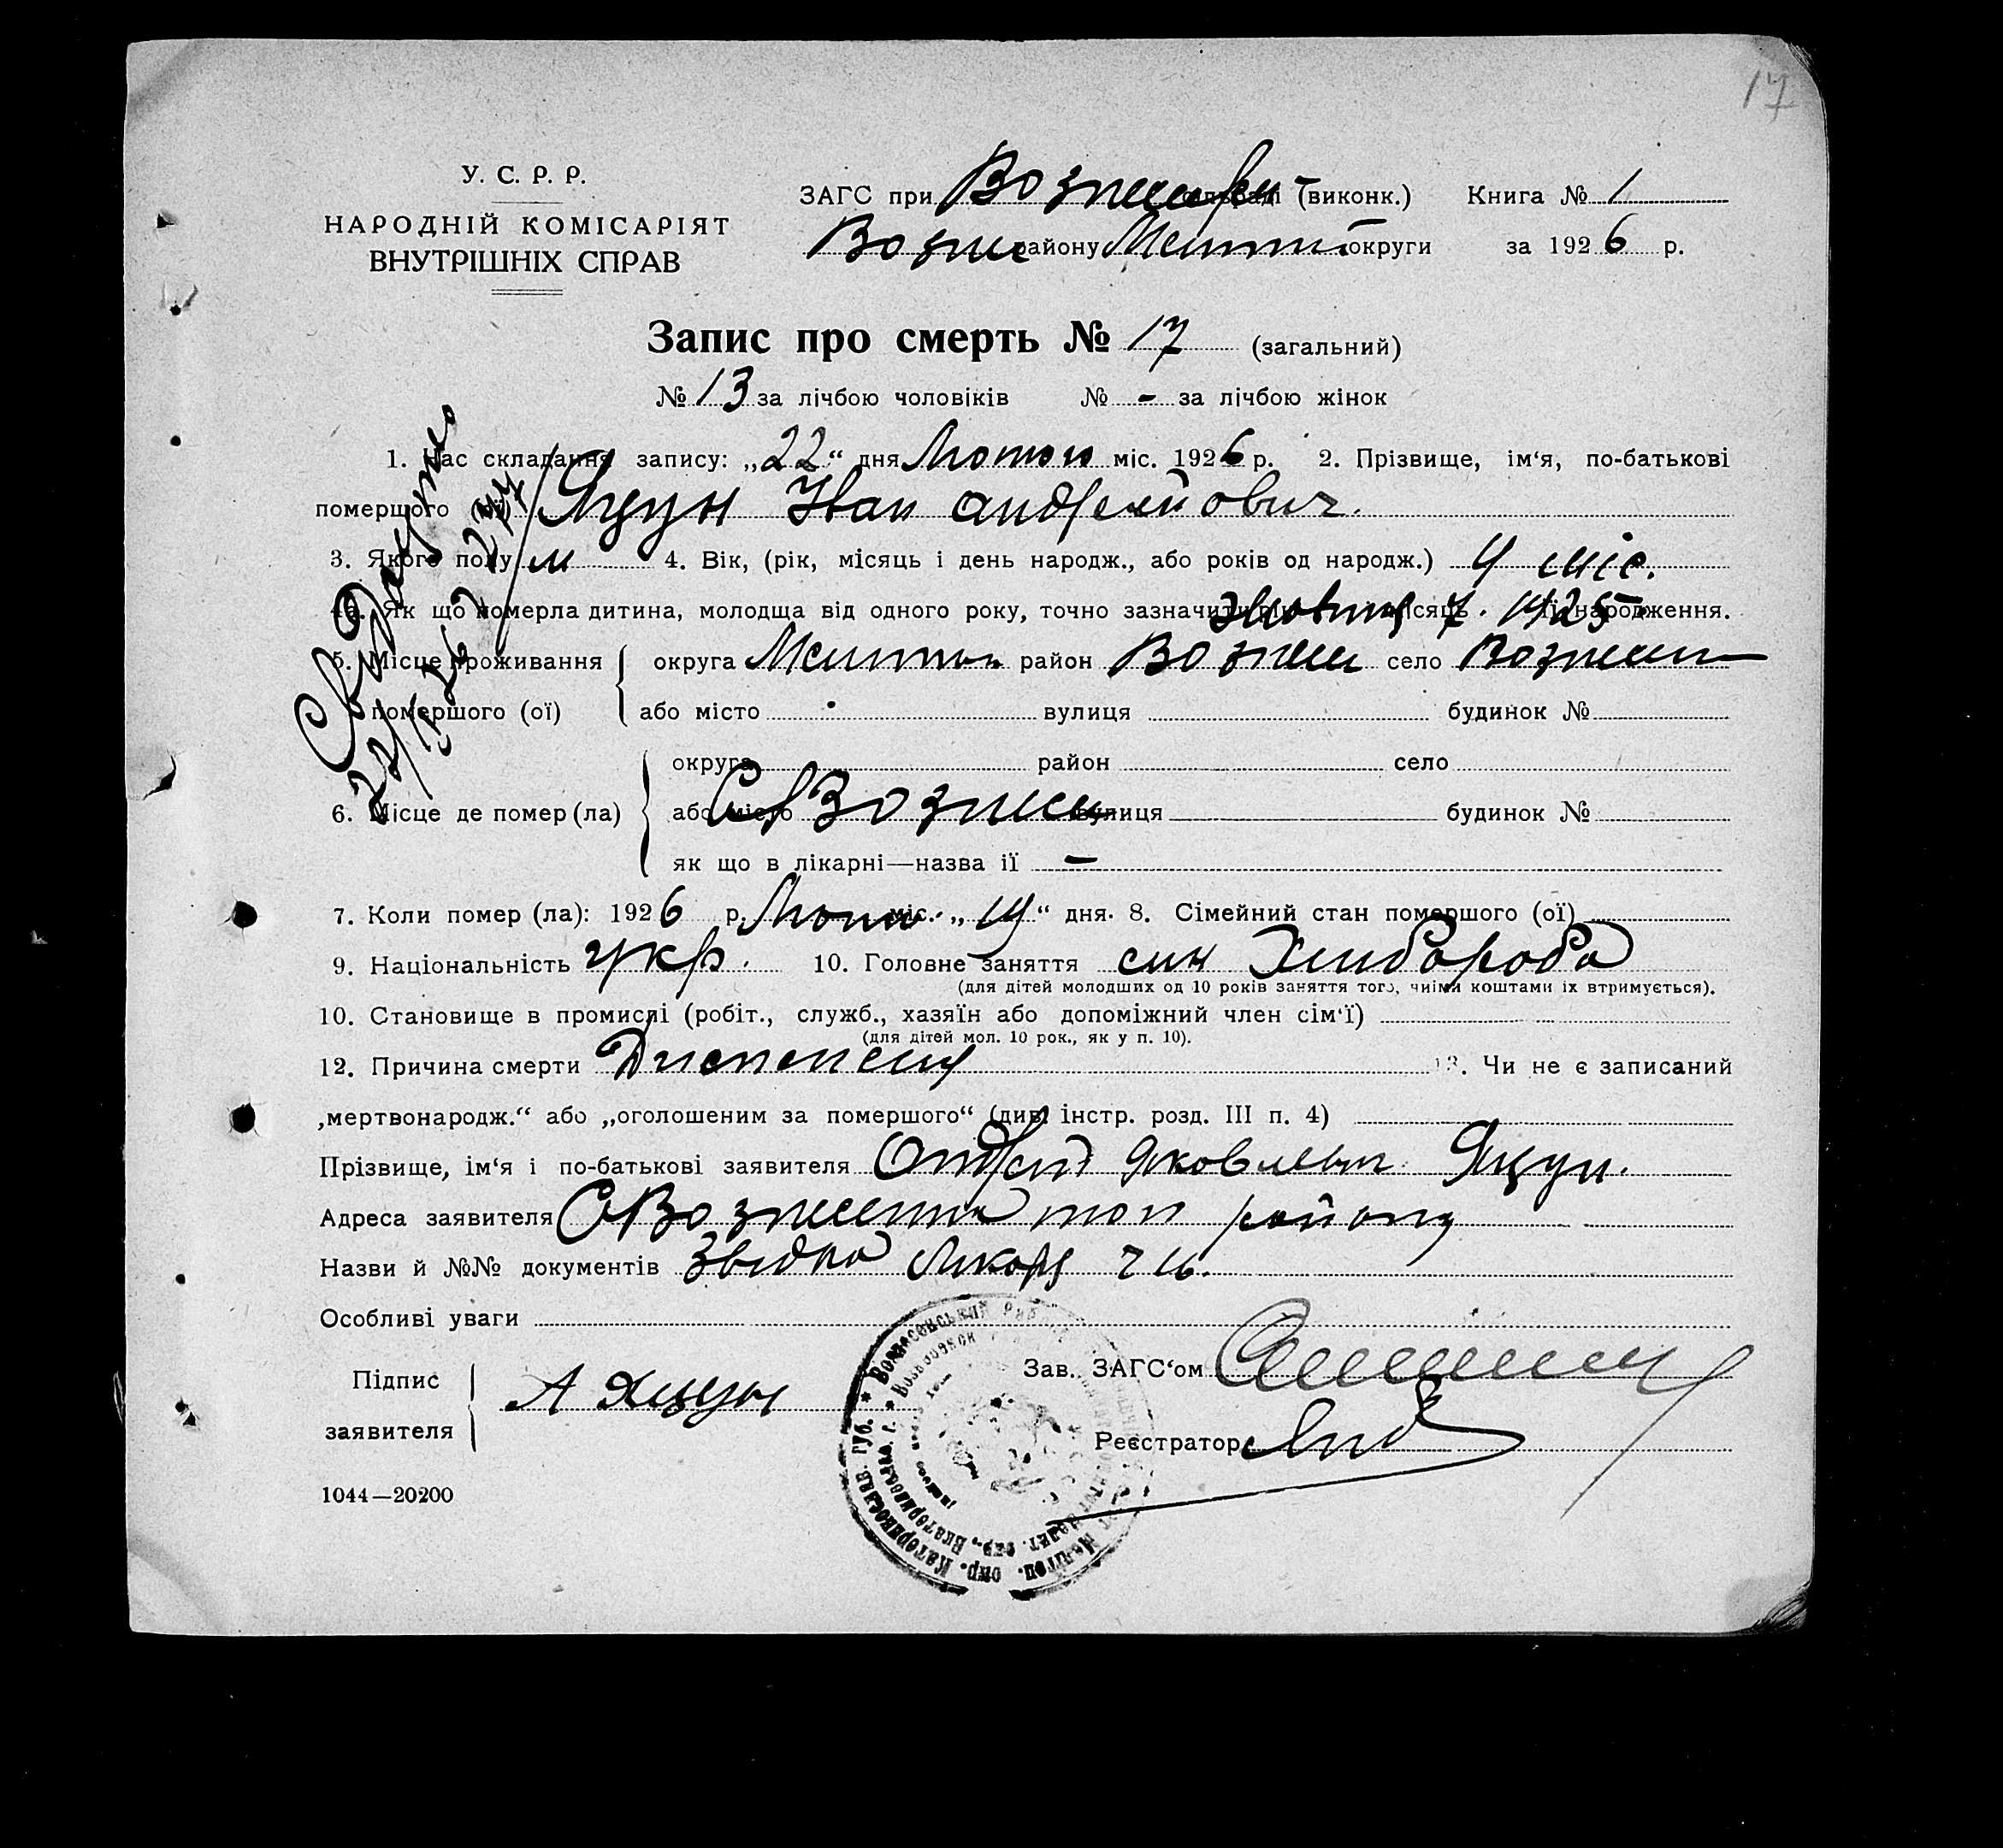 17
У. С. Р. Р.
НАРОДНІЙ КОМІСАРІЯТ
ВНУТРІШНІХ СПРАВ
ЗАГС при (виконк.) Книга № 1
Возне району Мелит округи за 1926 р.
Запис про смерть № 17 (загальний)
№ 13 за лічбою чоловіків № - за лічбою жінок
1. Час складання запису: „22“ дня Лютого міс. 1926 р. 2. Прізвище, ім‘я, по-батькові
помершого Яцун Іван Андреєйович.
3. Якого полу м 4. Вік, (рік, місяць і день народж., або років од народж.) 4 міс.
4а. Як що померла дитина, молодща від одного року, точно зазначити місяць її народження. Жовтня 7. 1925
5. Місце проживання округа район Вознес село Вознесен
помершого (ої) або місто вулиця будинок №
округа район село
6. Місце де помер (ла) або місто С Вознесен вулиця будинок №
як що в лікарні—назва ії –
7. Коли помер (ла): 1926 р. Лютого міс. „19“ дня. 8. Сімейний стан помершого (ої)
9. Національність укр. 10. Головне заняття син Хлибороба
(для дітей молодших од 10 років заняття того, чиїми коштами їх втримується).
10. Становище в промислі (робіт., служб., хазяїн або допоміжний член сім‘ї)
(для дітей мол. 10 рок., як у п. 10).
12. Причина смерти Диспепсия 13. Чи не є записаний
„мертвонародж.“ або „оголошеним за помершого“ (див. інстр. розд. III п. 4)
Прізвище, ім‘я і по-батькові заявителя Андрей Яковлевич Яцун.
Адреса заявителя С Вознесенка того району
Назви й №№ документів Звідка Лікаря
Особливі уваги
Підпис
заявителя А Яцун
Зав. ЗАГС‘ом
Реєстратор
1044—20200